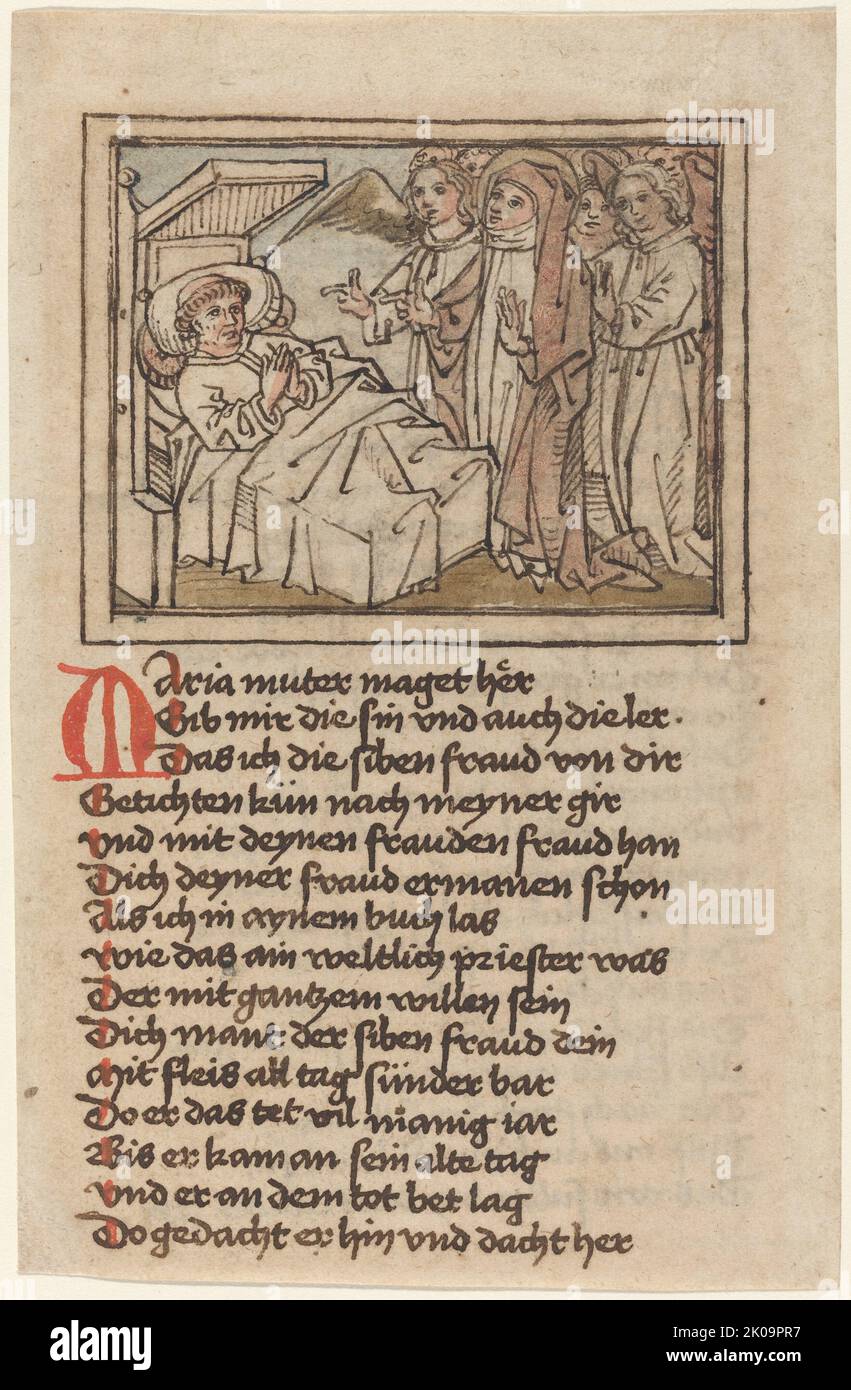 MAria muter maget hër
Gib mir die sin vnd auch die ler.
Das ich die siben fraud von dir
Getichten kün nach meyner gir
vnd mit deynen frauden fraud han
Dich deyner fraud ermanen schon
Als ich in aynem buch las
wie das ain weltlich priester was
Der mit gantzem willen sein
Dich mant der siben fraud dein
Mit fleis all tag sünder bar
Do er das tet vil manig iar
Bis er kam an sein alte tag
vnd er an dem tot bet lag
Do gedacht er hin vnd dacht her
alamy
Image ID: 2K09PR7
www.alamy.com